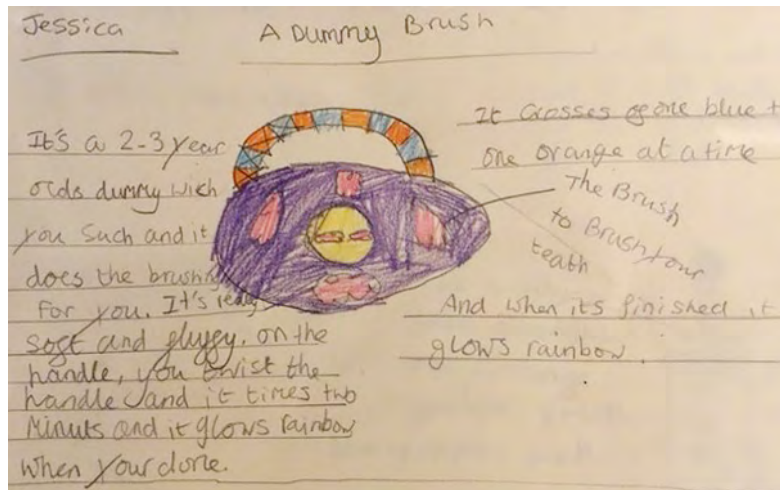 Jessica
A Dummy Brush
It's a 2-3 year
olds dummy wich
you Such and it
does the brushing
for you. It's really
soft and fluffy. on the
handle, you twist the
handle and it times two
Minuts and it glows rainbow
when your done.
It crosses of one blue +
one orange at a time
The Brush
to Brush your
teath
And when its finished it
glows rainbow.